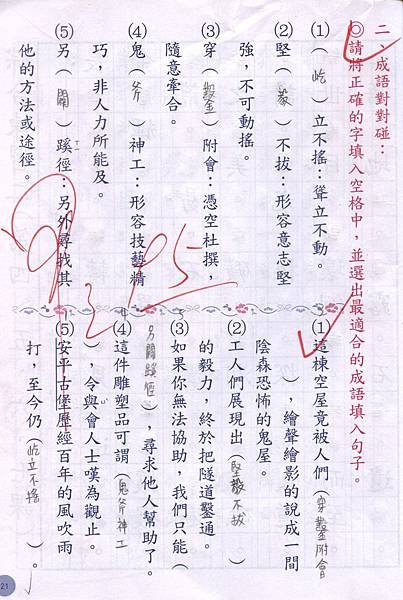 二、成語對對碰：
◎請將正確的字填入空格中，並選出最適合的成語填入句子。
(1)（屹）立不搖：聳立不動。
(2)堅（毅）不拔：形容意志堅
強，不可動搖。
(3)穿（鑿）附會：憑空杜撰，
隨意牽合。
(4)鬼（斧）神工：形容技藝精
巧，非人力所能及。
(5)另（闢）蹊徑：另外尋找其
他的方法或途徑。
(1)這棟空屋竟被人們（穿鑿附會
），繪聲繪影的說成一間
陰森恐怖的鬼屋。
(2)工人們展現出（堅毅不拔）
的毅力，終於把隧道鑿通。
(3)如果你無法協助，我們只能（
另闢蹊徑），尋求他人幫助了。
(4)這件雕塑品可謂（鬼斧神工
），令與會人士嘆為觀止。
(5)安平古堡歷經百年的風吹雨
打，至今仍（屹立不搖）。
95
21